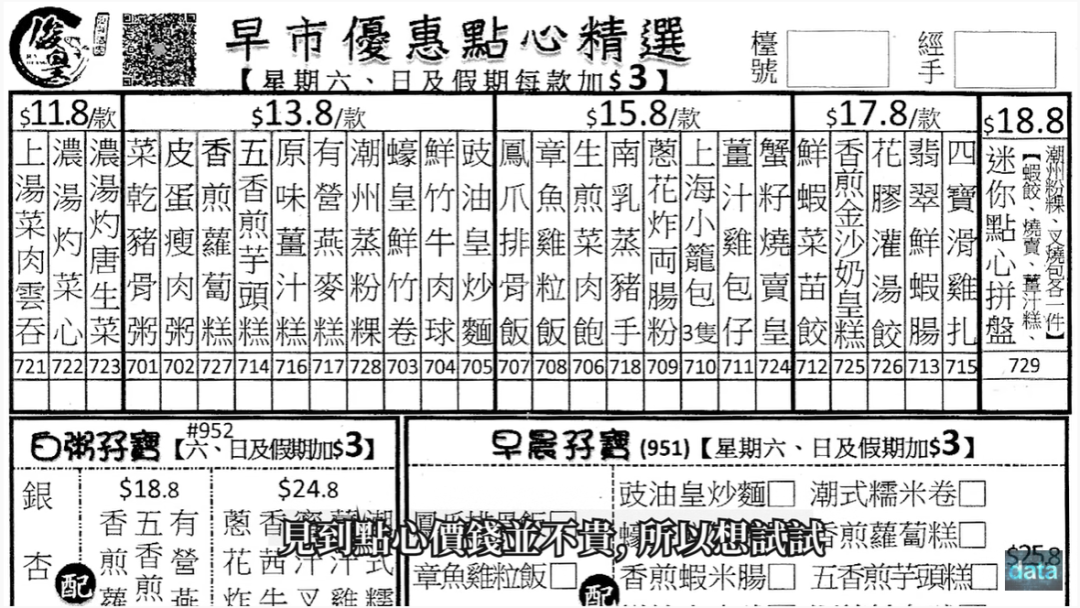 早市優惠點心精選
【星期六、日及假期每款加$3】
檯號
經手
$11.8/款
$13.8/款
$15.8/款
$17.8/款
$18.8
上湯菜肉雲吞 721
濃湯灼菜心 722
濃湯灼唐生菜 723
菜乾豬骨粥 701
皮蛋瘦肉粥 702
香煎蘿蔔糕 727
五香煎芋頭糕 714
原味薑汁糕 716
有營燕麥糕 717
潮州蒸粉粿 728
蠔皇鮮竹卷 703
鮮竹牛肉球 704
豉油皇炒麵 705
鳳爪排骨飯 707
章魚雞粒飯 708
生煎菜肉飽 706
南乳蒸豬手 718
蔥花炸両腸粉 709
上海小籠包3隻 710
薑汁雞包仔 711
蟹籽燒賣皇 724
鮮蝦菜苗餃 712
香煎金沙奶皇糕 725
花膠灌湯餃 726
翡翠鮮蝦腸 713
四寶滑雞扎 715
迷你點心拼盤
【蝦餃、燒賣、薑汁糕、
潮州粉粿、叉燒包各一件】
729
白粥孖寶
#952
【六、日及假期加$3】
銀杏
$18.8
$24.8
配
早晨孖寶 (951)【星期六、日及假期加$3】
豉油皇炒麵
潮式糯米卷
香煎蘿蔔糕
章魚雞粒飯
香煎蝦米腸
五香煎芋頭糕
$25.8
配
見到點心價錢並不貴, 所以想試試
data